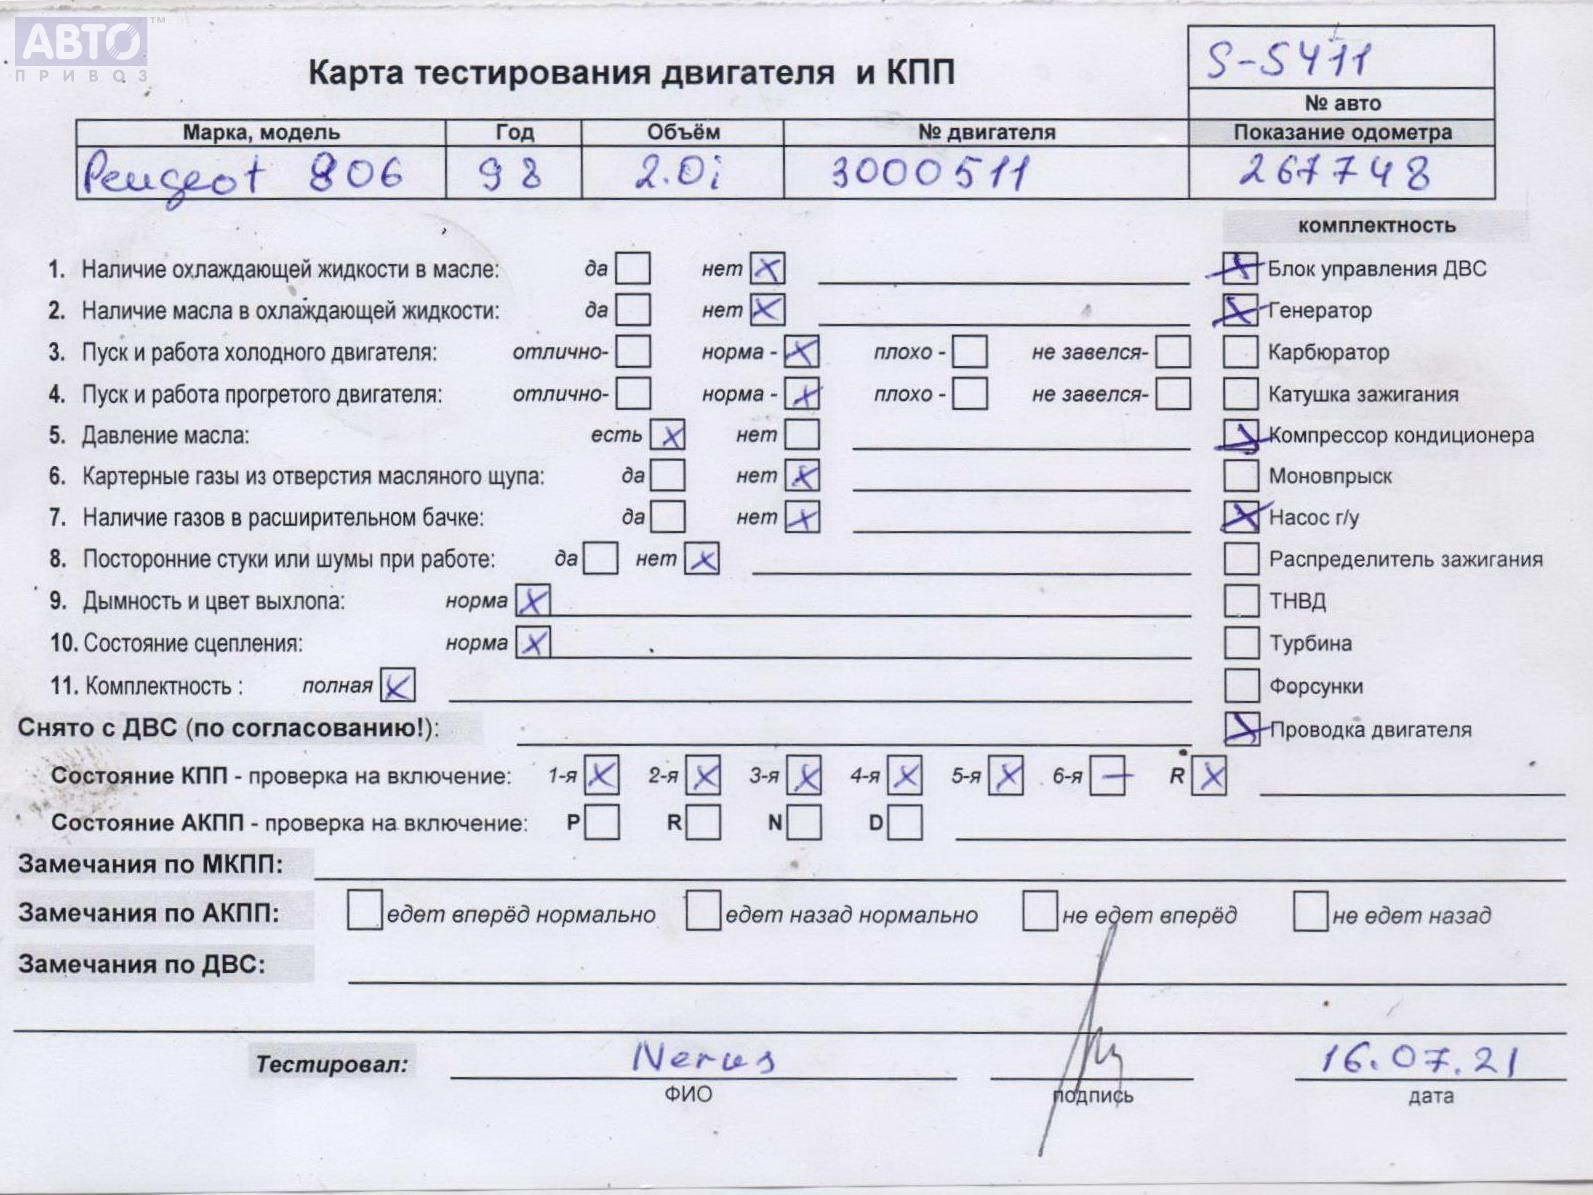 АВТО™
ПРИВОЗ
Карта тестирования двигателя и КПП
S-S411
№ авто
Марка, модель Год Объём № двигателя Показание одометра
Peugeot 806 98 2.0i 3000511 267748
комплектность
1. Наличие охлаждающей жидкости в масле: да нет Блок управления ДВС
2. Наличие масла в охлаждающей жидкости: да нет Генератор
3. Пуск и работа холодного двигателя: отлично- норма - плохо - не завелся- Карбюратор
4. Пуск и работа прогретого двигателя: отлично- норма - плохо - не завелся- Катушка зажигания
5. Давление масла: есть нет Компрессор кондиционера
6. Картерные газы из отверстия масляного щупа: да нет Моновпрыск
7. Наличие газов в расширительном бачке: да нет Насос г/у
8. Посторонние стуки или шумы при работе: да нет Распределитель зажигания
9. Дымность и цвет выхлопа: норма ТНВД
10. Состояние сцепления: норма Турбина
11. Комплектность : полная Форсунки
Снято с ДВС (по согласованию!): Проводка двигателя
Состояние КПП - проверка на включение: 1-я 2-я 3-я 4-я 5-я 6-я R
Состояние АКПП - проверка на включение: P R N D
Замечания по МКПП:
Замечания по АКПП: едет вперёд нормально едет назад нормально не едет вперёд не едет назад
Замечания по ДВС:
Тестировал: Nerus 16.07.21
ФИО подпись дата